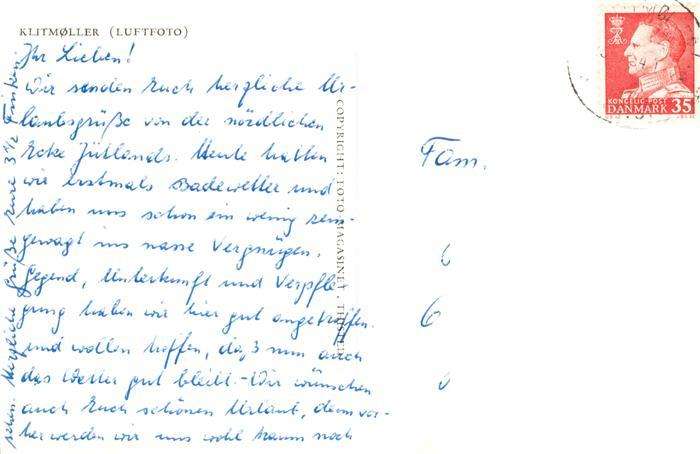 KLITMØLLER (LUFTFOTO)
Ihr Lieben!
Wir senden Euch herzliche Ur-
laubsgrüße von der nördlichen
Ecke Jütlands. Heute hatten
wir erstmals Badewetter und
haben uns schon ein wenig rein-
gewagt ins nasse Vergnügen.
Gegend, Unterkunft und Verpfle-
gung haben wir hier gut angetroffen
und wollen hoffen, daß nun auch
das Wetter gut bleibt. - Wir wünschen
auch Euch schönen Urlaub, denn vor-
her werden wir uns wohl kaum noch
sehen. Herzliche Grüße Eure 3 1/2 Finken
COPYRIGHT: FOTO-MAGASINET, THISTED
Fam.
6
KONGELIG POST
DANMARK 35